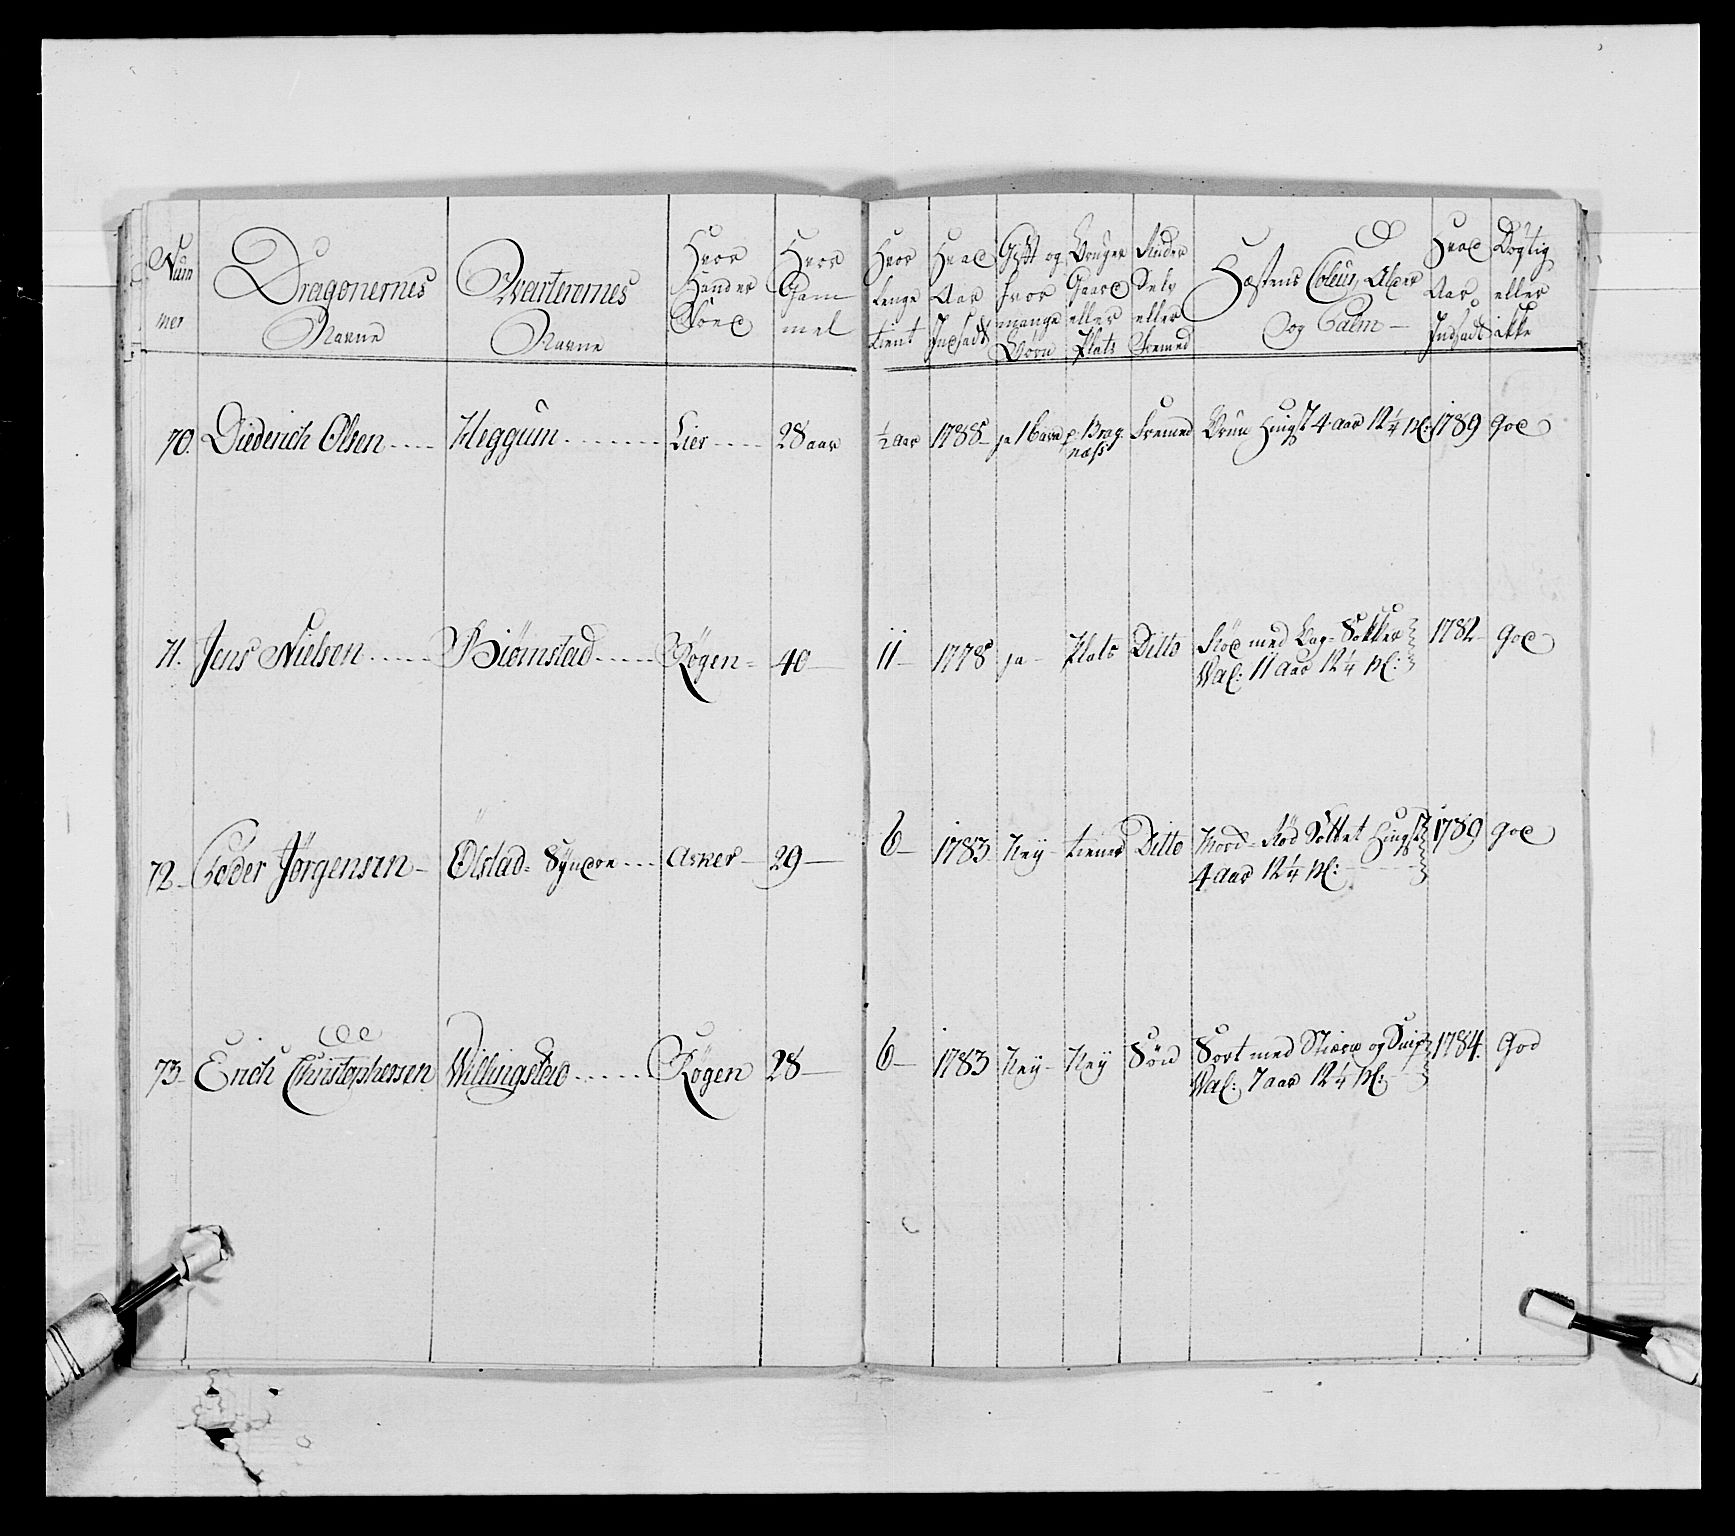 Num
mer
Dragonernes
Navne
Qvarterernes
Navne
Hvor
Hånder
Føed
Hvor
Gam
mel
Hvor
lenge
tient
Hvad
Aar
Indsadt
Gift og
hvor
mange
Børn
Bruger
Gaard
eller
Plats
Ruder
Selv
eller
Fremed
Hæstens Coleur, Alder
og Palm
Hvad
Aar
Indsadt
Dygtig
eller
ikke
70. Diederich Olsen Heggum Lier 28 aar ½ aar 1788 ja 1 barn p: Brag
næss Fremed Brun Hingst 4 aar 12 ¼ pl: 1789 god
71. Jens Nielsen Biørnstad Røgen 40 11 1778 ja Plats Ditto Rød med Bag Sokker
Val: 11 Aar 12 ¼ pl: 1782 god
72 Peder Jørgensen Ølstad Syndre Asker 29 6 1783 Ney tiener Ditto Mord Rød Sottet Hingst
4 Aar 12 ¼ pl: 1789 god
73 Erich Christophersen Willingstad Røgen 28 6 1783 Ney Ney Søn Sort med Stierne og Snip
Val: 7 aar 12 ¼ pl: 1784 god